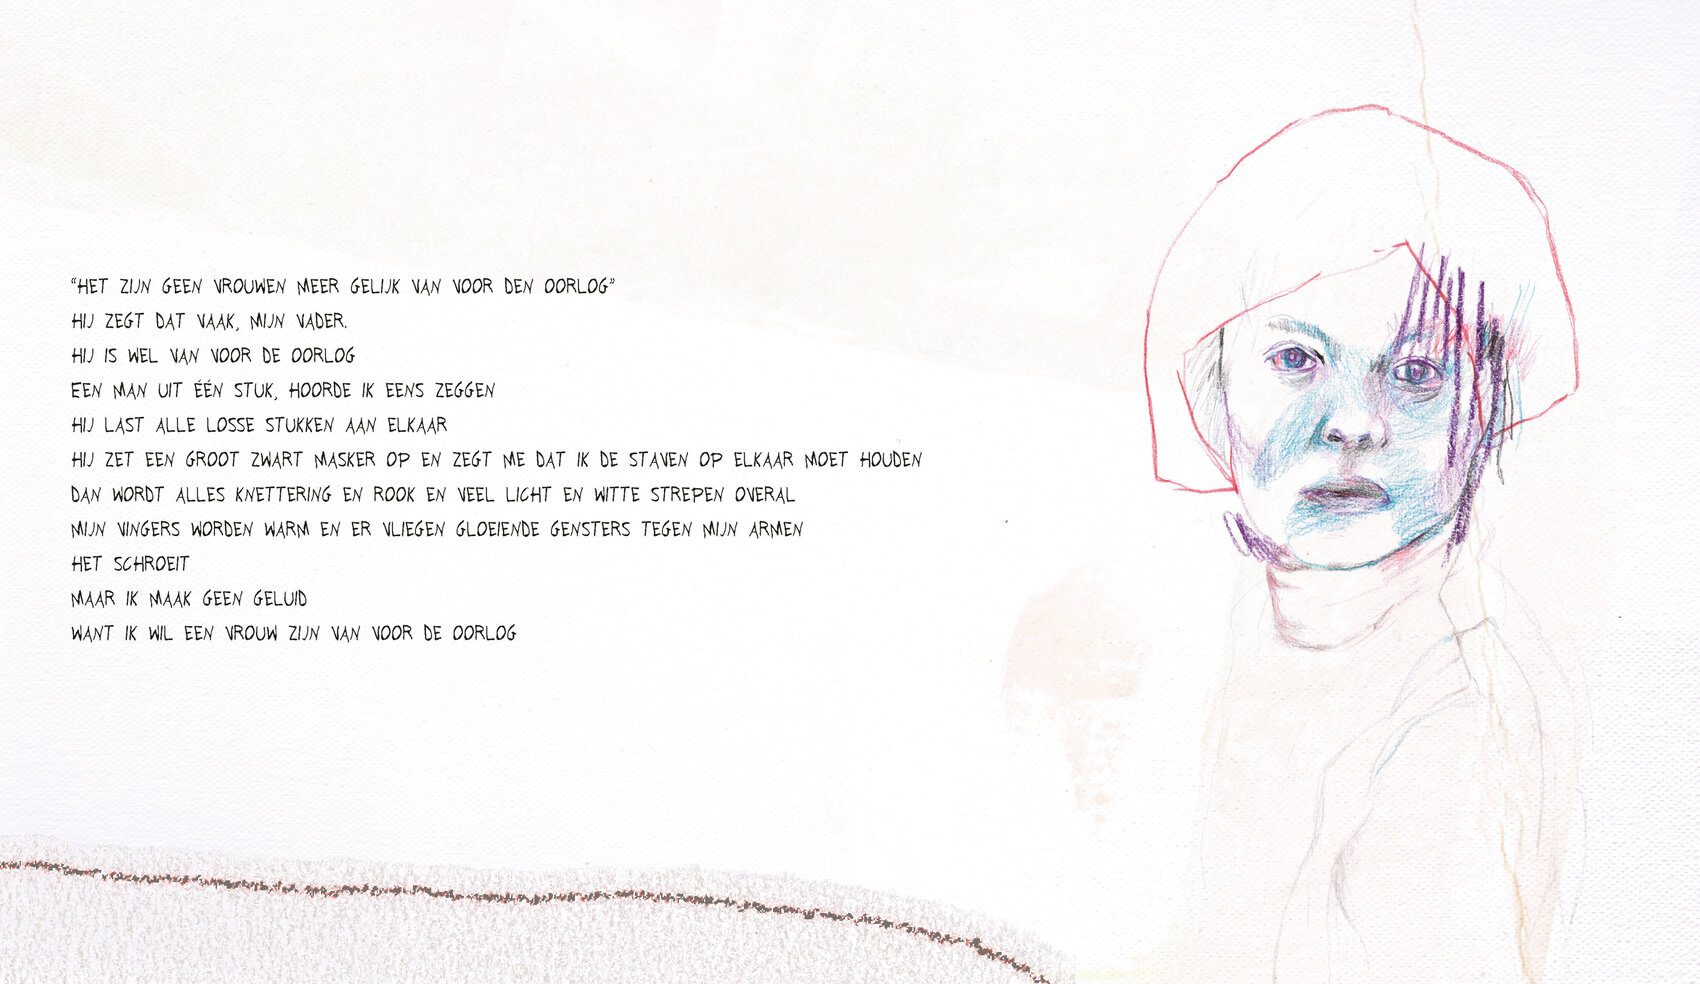 “HET ZIJN GEEN VROUWEN MEER GELIJK VAN VOOR DEN OORLOG”
HIJ ZEGT DAT VAAK, MIJN VADER.
HIJ IS WEL VAN VOOR DE OORLOG
EEN MAN UIT ÉÉN STUK, HOORDE IK EENS ZEGGEN
HIJ LAST ALLE LOSSE STUKKEN AAN ELKAAR
HIJ ZET EEN GROOT ZWART MASKER OP EN ZEGT ME DAT IK DE STAVEN OP ELKAAR MOET HOUDEN
DAN WORDT ALLES KNETTERING EN ROOK EN VEEL LICHT EN WITTE STREPEN OVERAL
MIJN VINGERS WORDEN WARM EN ER VLIEGEN GLOEIENDE GENSTERS TEGEN MIJN ARMEN
HET SCHROEIT
MAAR IK MAAK GEEN GELUID
WANT IK WIL EEN VROUW ZIJN VAN VOOR DE OORLOG